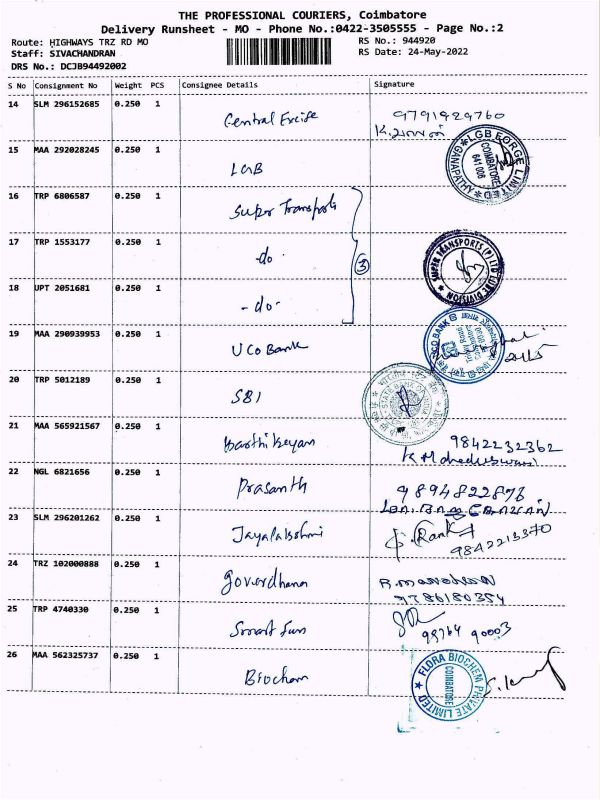 THE PROFESSIONAL COURIERS, Coimbatore
Delivery Runsheet - MO - Phone No.:0422-3505555 - Page No.:2
Route: HIGHWAYS TRZ RD MO
RS No.: 944920
Staff: SIVACHANDRAN
RS Date: 24-May-2022
DRS No.: DCJB94492002
S No Consignment No Weight PCS Consignee Details Signature
14 SLM 296152685 0.250 1 Central Excise 9791929760
15 MAA 292028245 0.250 1 LGB
LGB FORGE LIMITED
GANAPATHY
COIMBATORE
641 006
16 TRP 6806587 0.250 1 Super Transports
17 TRP 1553177 0.250 1 -do-
3
SUPER TRANSPORTS (P) LTD
DIVISION
18 UPT 2051681 0.250 1 -do-
19 MAA 290939953 0.250 1 UCo Bank
UCO BANK
20 TRP 5012189 0.250 1 SBI
STATE BANK OF INDIA
21 MAA 565921567 0.250 1 Karthikeyan 9842232362
22 NGL 6821656 0.250 1 Prasanth 9894822876
23 SLM 296201262 0.250 1 Jayalakshmi
9842213370
24 TRZ 102000888 0.250 1 Goverdhanan R.manoharan
9786180354
25 TRP 4740330 0.250 1 Smart Sun
98764 90003
26 MAA 562325737 0.250 1 Biochem
FLORA BIOCHEM PRIVATE LIMITED
COIMBATORE